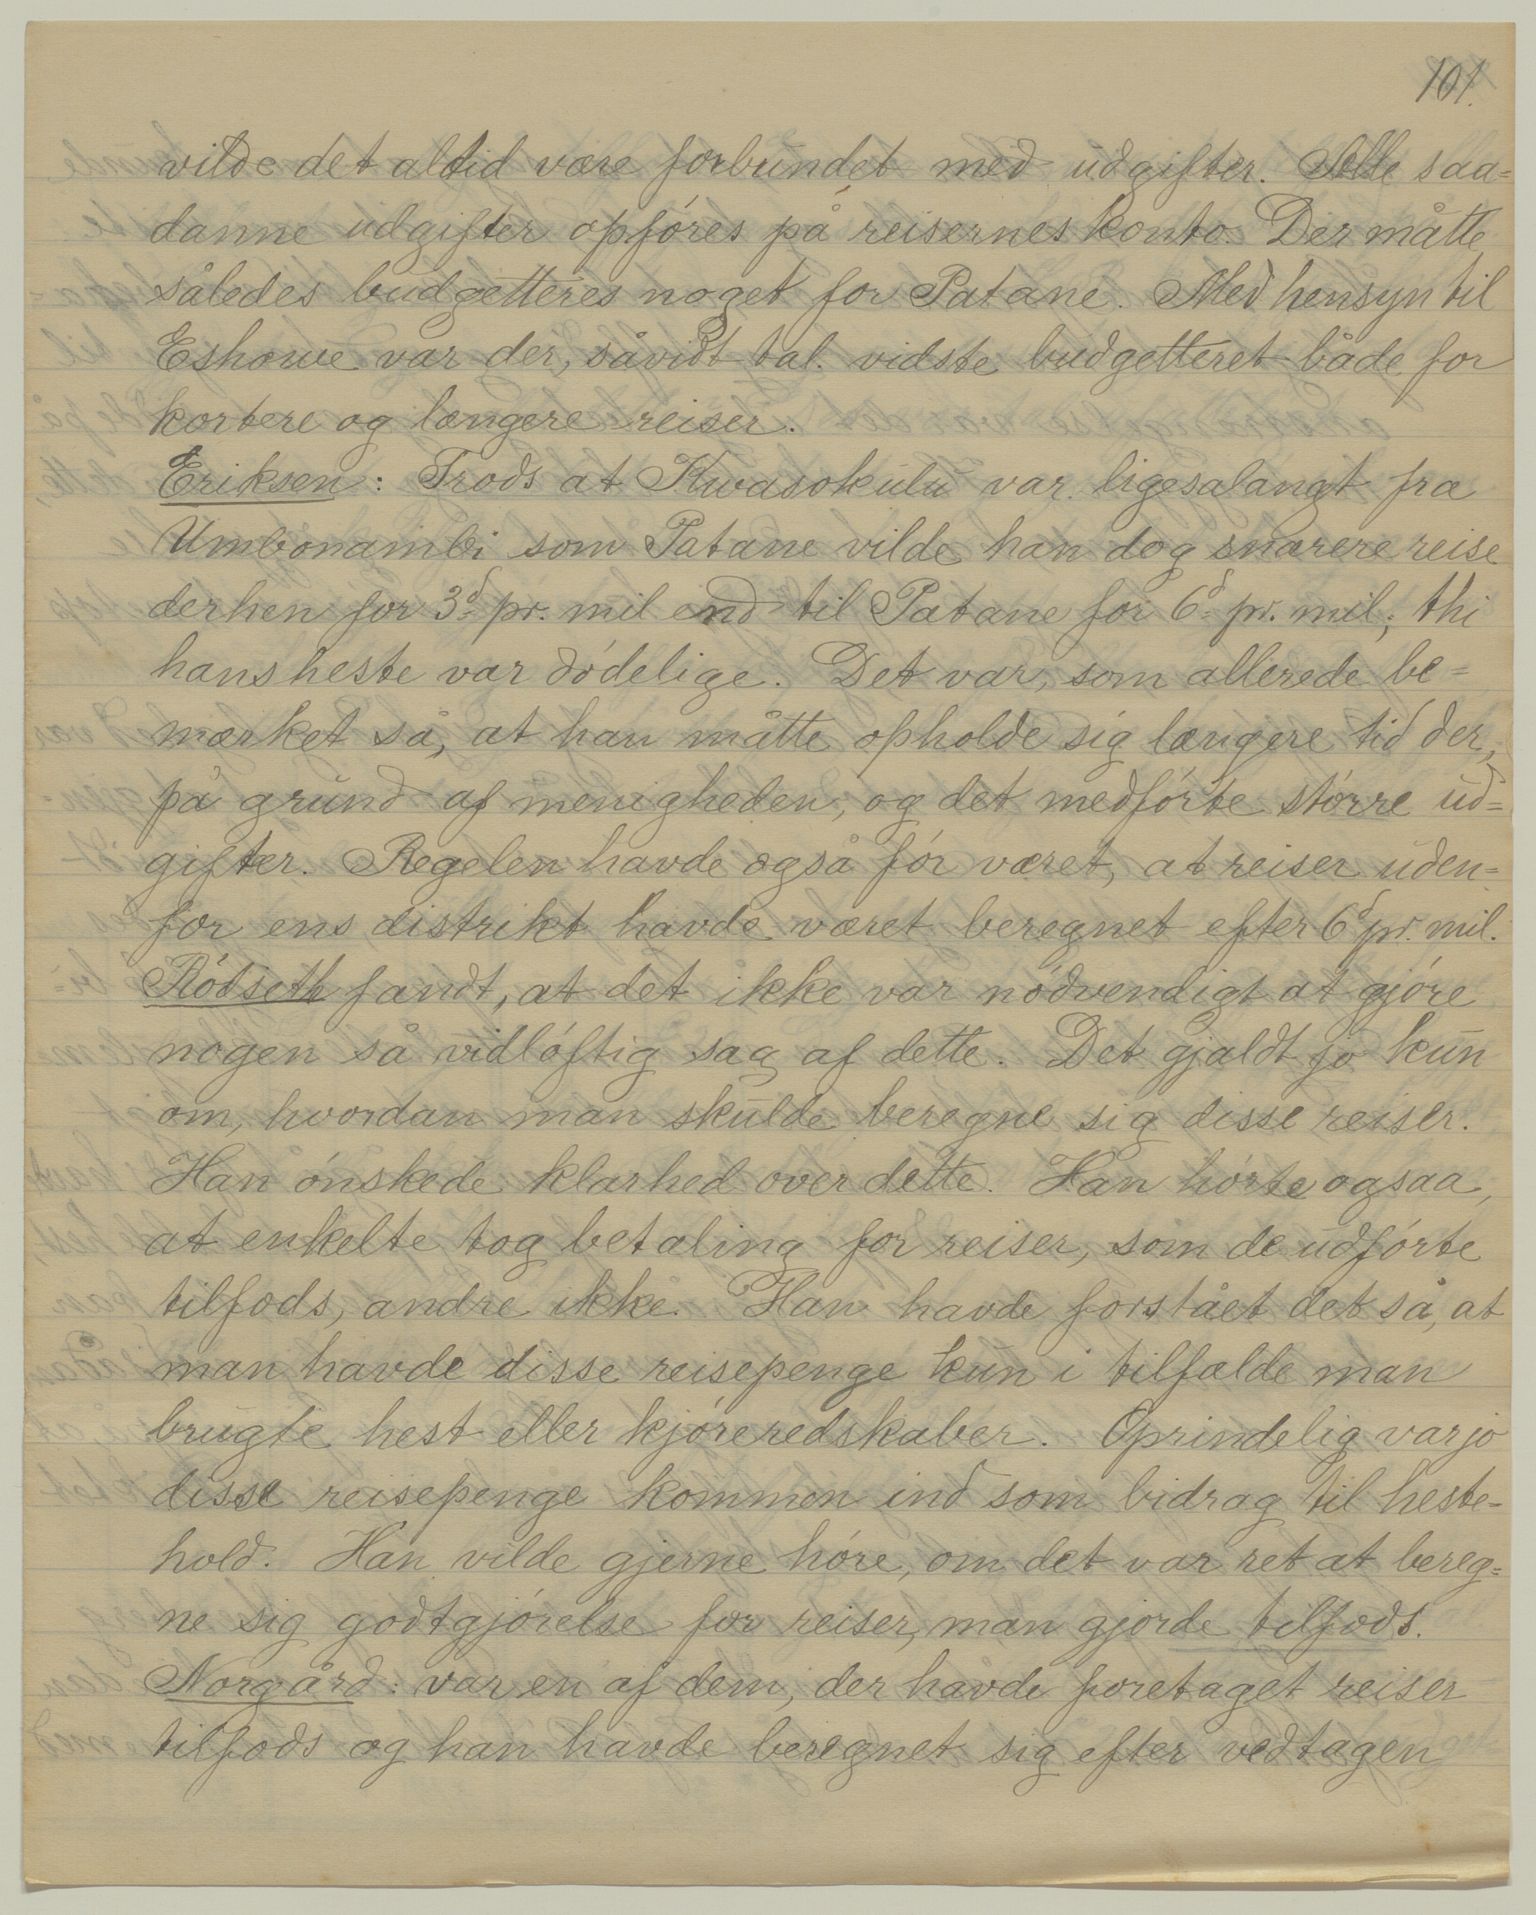 101.
vilde det altid være forbundet med udgifter. Alle saa=
danne udgifter opføres på reisernes konto. Der måtte
således budgetteres noget for Patane. Med hensyn til
Eshowe var der, såvidt tal. vidste budgetteret både for
kortere og længere reiser.
Eriksen: Trods at Kwasokulu var ligesålangt fra
Umbonambi som Patane vilde han dog snarere reise
derhen for 3d pr. mil end til Patane for 6d pr. mil; thi
hans heste var dødelige. Det var, som allerede be=
mærket så, at han måtte opholde sig længere tid der,
på grund af menigheden, og det medførte større ud=
gifter. Regelen havde også før været, at reiser uden=
for ens distrikt havde været beregnet efter 6d pr. mil.
Rödseth fandt, at det ikke var nødvendigt at gjøre
nogen så vidløftig sag af dette. Det gjaldt jo kun
om, hvordan man skulde beregne sig disse reiser.
Han ønskede klarhed over dette. Han hørte ogsaa,
at enkelte tog betaling for reiser, som de udførte
tilfods, andre ikke. Han havde forstået det så, at
man havde disse reisepenge kun i tilfælde man
brugte hest eller kjøreredskaber. Oprindelig var jo
disse reisepenge kommen ind som bidrag til heste=
hold. Han vilde gjerne høre, om det var ret at bereg=
ne sig godtgjørelse for reiser, man gjorde tilfods.
Norgård: var en af dem, der havde foretaget reiser
tilfods og han havde beregnet sig efter vedtagen